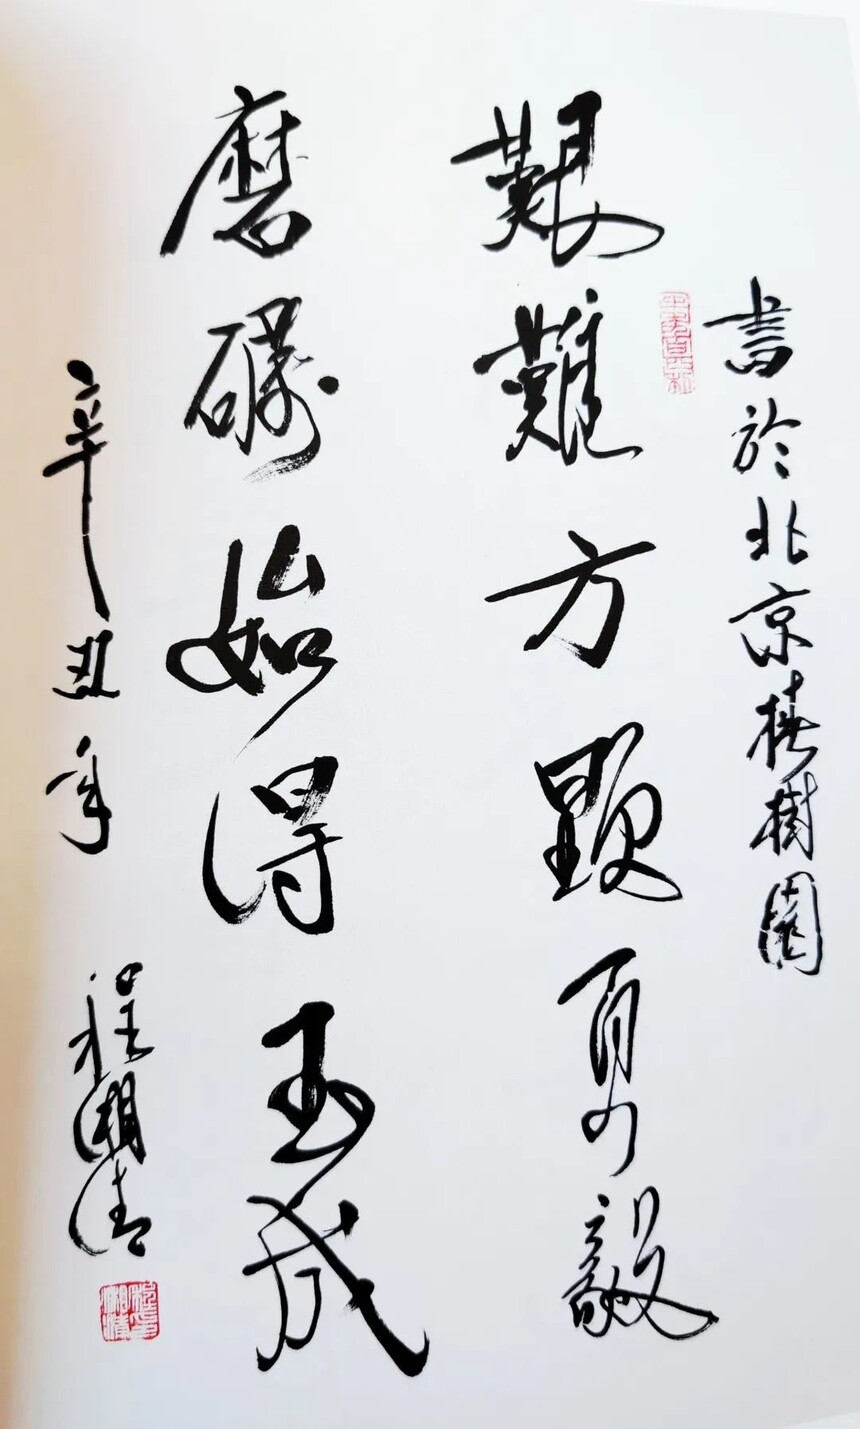 書於北京椿樹園
艱難方顯勇毅
磨礪始得玉成
辛丑年 程湘清